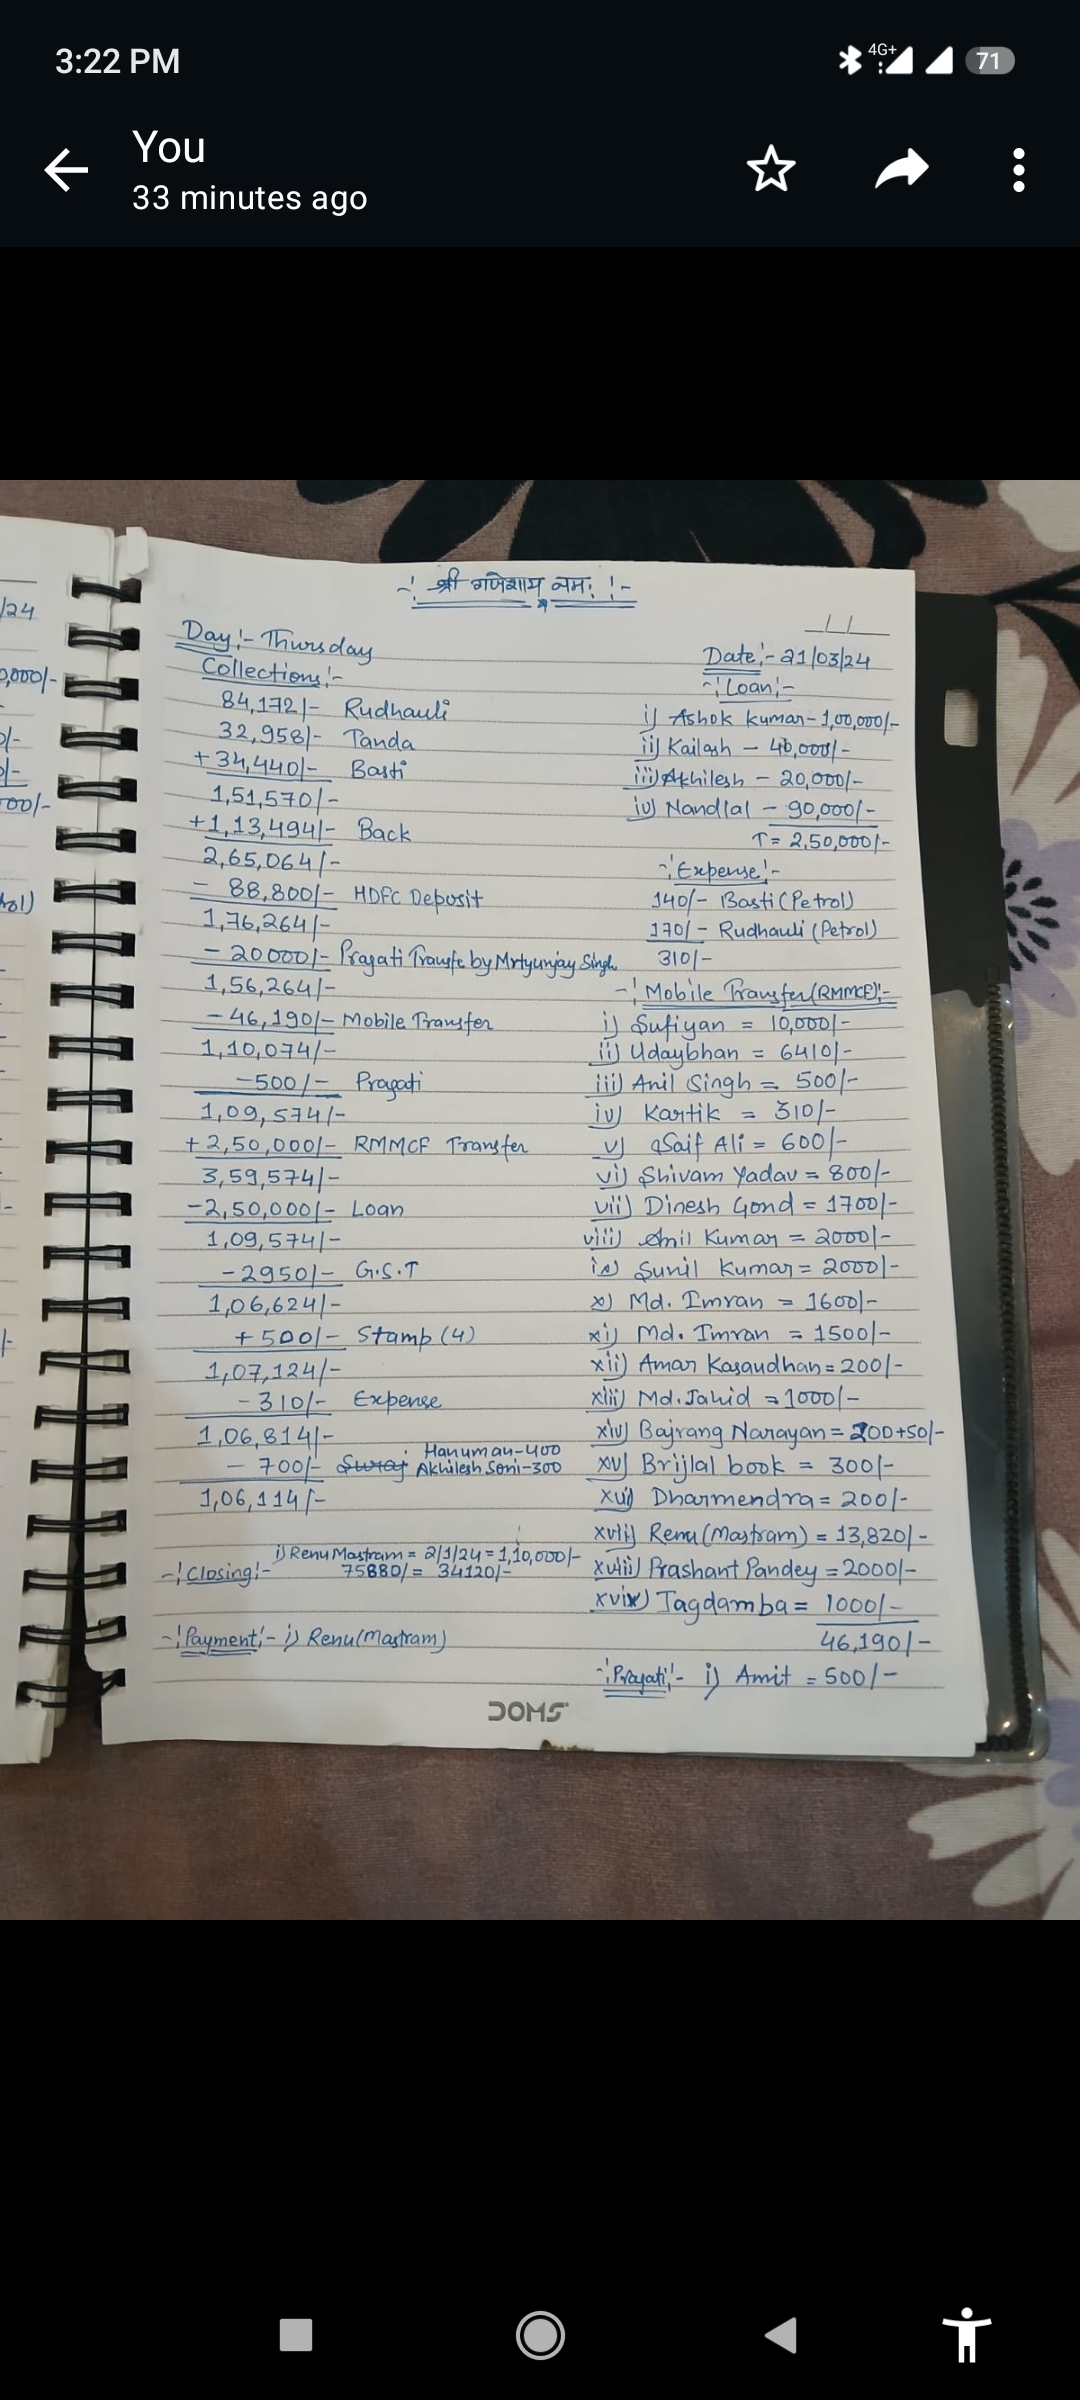 3:22 PM
4G+
71
You
33 minutes ago
-: श्री गणेशाय नमः :-
Day:- Thursday
Date:- 21/03/24
Collections:-
84,172/- Rudhauli
32,958/- Tanda
+34,440/- Basti
1,51,570/-
+1,13,494/- Back
2,65,064/-
- 88,800/- HDFC Deposit
1,76,264/-
- 20000/- Pragati Transfe by Mrtyunjay Singh
1,56,264/-
- 46,190/- Mobile Transfer
1,10,074/-
-500/- Pragati
1,09,574/-
+2,50,000/- RMMCF Transfer
3,59,574/-
-2,50,000/- Loan
1,09,574/-
-2950/- G.S.T
1,06,624/-
+500/- Stamp (4)
1,07,124/-
-310/- Expense
1,06,814/-
- 700/- Suraj Hanuman-400
Akhilesh Soni-300
1,06,114/-
-:Closing:- i) Renu Mastram = 2/1/24 = 1,10,000/-
75880/= 34120/-
-:Payment:- i) Renu(Mastram)
-:Loan:-
i) Ashok Kumar - 1,00,000/-
ii) Kailash - 40,000/-
iii) Akhilesh - 20,000/-
iv) Nandlal - 90,000/-
T = 2,50,000/-
-:Expense:-
140/- Basti (Petrol)
170/- Rudhauli (Petrol)
310/-
-:Mobile Transfer (RMMCF):-
i) Sufiyan = 10,000/-
ii) Udaybhan = 6410/-
iii) Anil Singh = 500/-
iv) Kartik = 310/-
v) Saif Ali = 600/-
vi) Shivam Yadav = 800/-
vii) Dinesh Gond = 1700/-
viii) Anil Kumar = 2000/-
ix) Sunil Kumar = 2000/-
x) Md. Imran = 1600/-
xi) Md. Imran = 1500/-
xii) Amar Kasaudhan = 200/-
xiii) Md. Jahid = 1000/-
xiv) Bajrang Narayan = 200+50/-
xv) Brijlal book = 300/-
xvi) Dharmendra = 200/-
xvii) Renu (Mastram) = 13,820/-
xviii) Prashant Pandey = 2000/-
xvix) Jagdamba = 1000/-
46,190/-
-:Pragati:- i) Amit = 500/-
DOMS
/24
0,000/-
/-
/-
000/-
rol)
/-